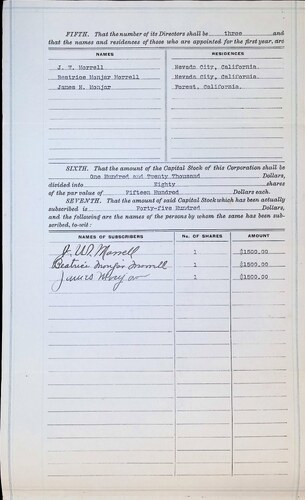 FIFTH. That the number of its Directors shall be three and
that the names and residences of those who are appointed for the first year, are
NAMES RESIDENCES
J. W. Morrell Nevada City, California.
Beatrice Monjar Morrell Nevada City, California.
James N. Monjar Forest, California.
SIXTH. That the amount of the Capital Stock of this Corporation shall be
One Hundred and Twenty Thousand Dollars,
divided into Eighty shares
of the par value of Fifteen Hundred Dollars each.
SEVENTH. That the amount of said Capital Stock which has been actually
subscribed is Forty-five Hundred Dollars,
and the following are the names of the persons by whom the same has been sub-
scribed, to-wit:
NAMES OF SUBSCRIBERS NO. OF SHARES AMOUNT
J. W. Morrell 1 $1500.00
Beatrice Monjar Morrell 1 $1500.00
James Monjar 1 $1500.00